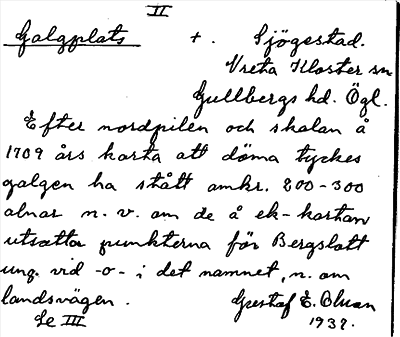 II
Galgplats + . Sjögestad.
Vreta Kloster sn
Gullbergs hd. Ögl.
Efter nordpilen och skalan å
1709 års karta att döma tyckes
galgen ha stått omkr. 200-300
alnar n. v. om de å ek-kartan
utsatta punkterna för Bergslott
ung. vid -o- i det namnet, n. om
landsvägen .
Gustaf E.
Se III
1937.